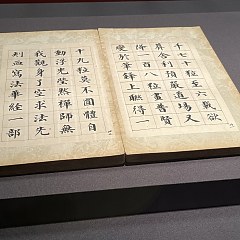 千七十粒至六載欲
葬舍利預嚴道場又
降一百八粒畫普賢
變於筆鋒上聯得一
十九粒莫不圓體自
動浮光瑩然禪師無
我觀身了空求法先
刺血寫法華經一部